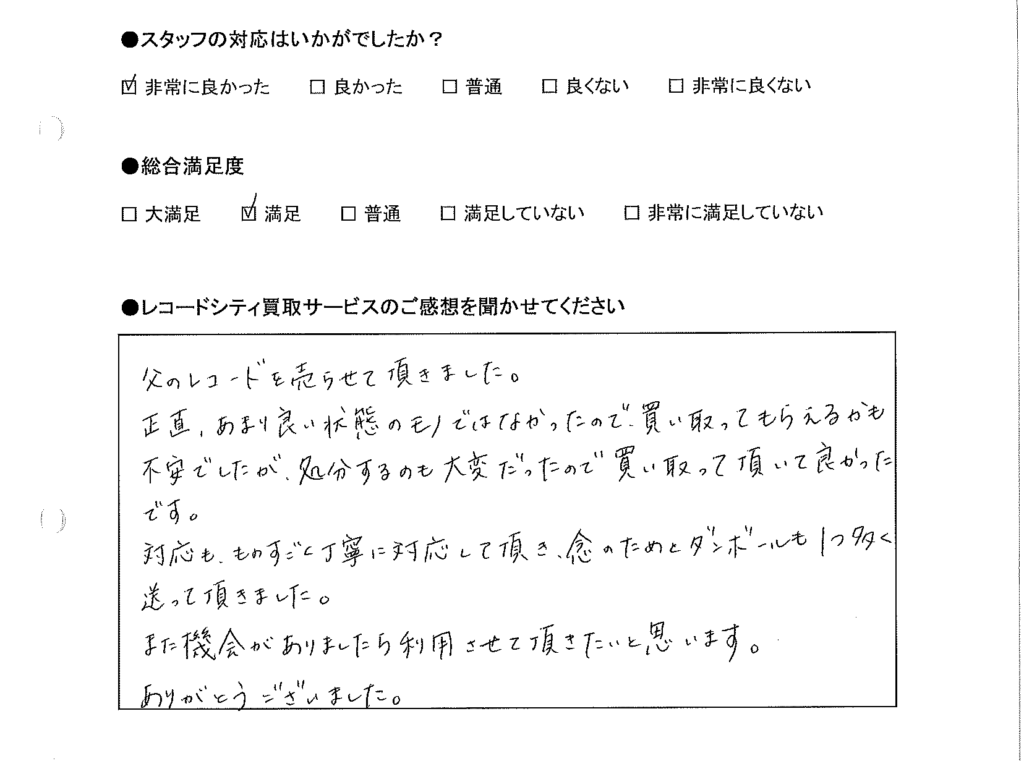 ●スタッフの対応はいかがでしたか？
☑ 非常に良かった □ 良かった □ 普通 □ 良くない □ 非常に良くない
●総合満足度
□ 大満足 ☑ 満足 □ 普通 □ 満足していない □ 非常に満足していない
●レコードシティ買取サービスのご感想を聞かせてください
父のレコードを売らせて頂きました。
正直、あまり良い状態のモノではなかったので、買い取ってもらえるかも
不安でしたが、処分するのも大変だったので買い取って頂いて良かった
です。
対応も、ものすごく丁寧に対応して頂き、念のためとダンボールも1つ多く
送って頂きました。
また機会がありましたら利用させて頂きたいと思います。
ありがとうございました。